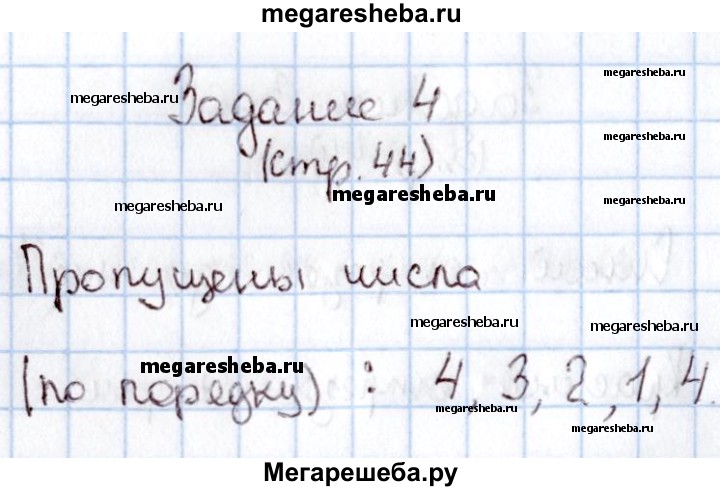 megaresheba.ru
Задание 4
megaresheba.ru
megaresheba.ru
megaresheba.ru
(стр. 44)
megaresheba.ru
megaresheba.ru
megaresheba.ru
Пропущены числа
megaresheba.ru
megaresheba.ru
megaresheba.ru
(по порядку) : 4, 3, 2, 1, 4.
megaresheba.ru
megaresheba.ru
Мегарешеба.ру